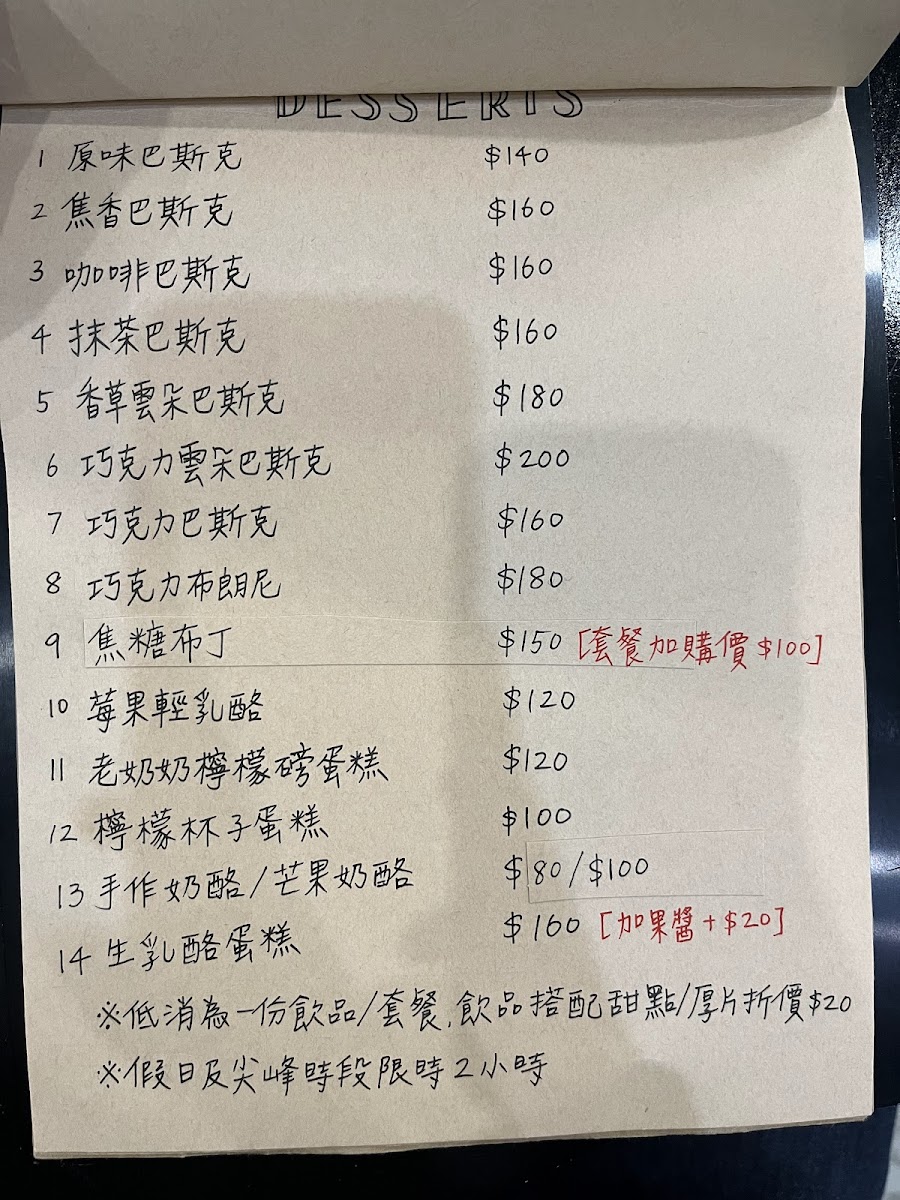 DESSERTS
1 原味巴斯克 $140
2 焦香巴斯克 $160
3 咖啡巴斯克 $160
4 抹茶巴斯克 $160
5 香草雲朵巴斯克 $180
6 巧克力雲朵巴斯克 $200
7 巧克力巴斯克 $160
8 巧克力布朗尼 $180
9 焦糖布丁 $150 [套餐加購價$100]
10 莓果輕乳酪 $120
11 老奶奶檸檬磅蛋糕 $120
12 檸檬杯子蛋糕 $100
13 手作奶酪/芒果奶酪 $80/$100
14 生乳酪蛋糕 $160 [加果醬+$20]
※低消為一份飲品/套餐,飲品搭配甜點/厚片折價$20
※假日及尖峰時段限時2小時